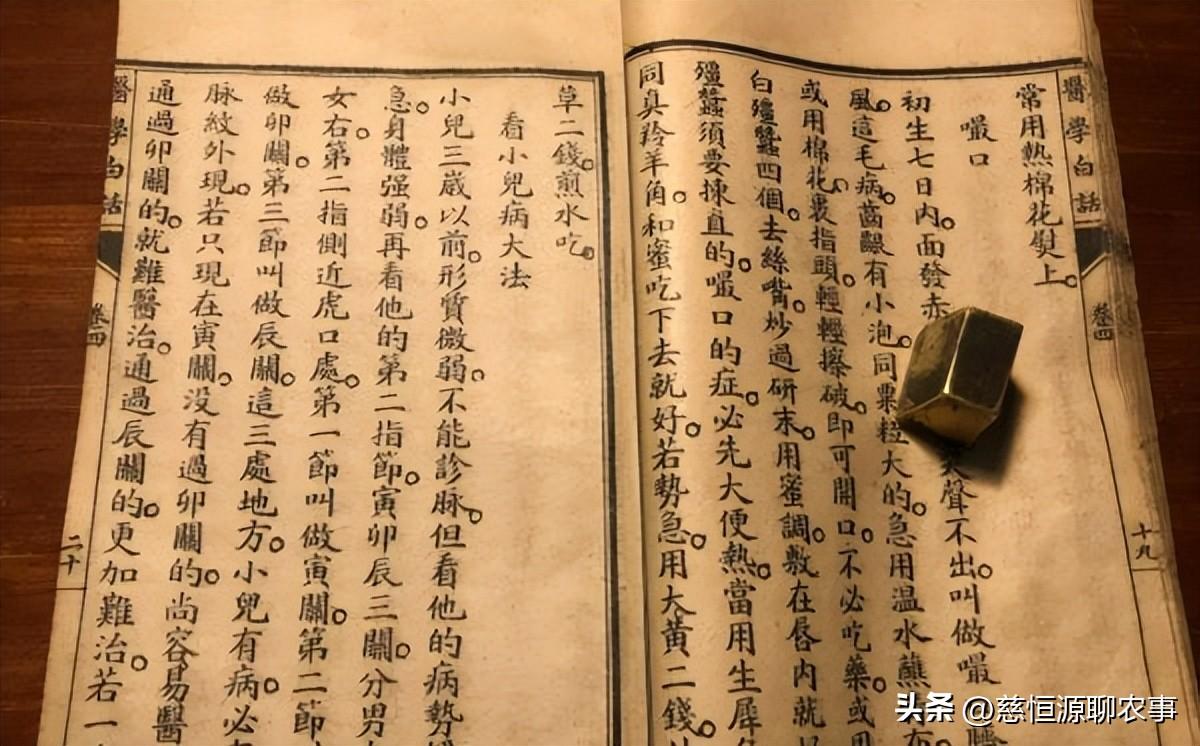 醫學白話
卷四
十九
常用熱棉花熨上。
嘬口
初生七日內。面發赤 聲不出。叫做嘬
風。這毛病。齒齦有小泡。同粟粒大的。急用溫水蘸
或用棉花裹指頭。輕輕擦破。即可開口。不必吃藥。或用
白殭蠶四個。去絲嘴。炒過研末。用蜜調。敷在唇內就
殭蠶須要揀直的。嘬口的症。必先大便熱。當用生犀
同真羚羊角。和蜜吃下去就好。若勢急。用大黃二錢。
草二錢。煎水吃。
看小兒病大法
小兒三歲以前。形質微弱。不能診脉。但看他的病勢
急。身體强弱。再看他的第二指節。寅卯辰三關。分男
女右。第二指側近虎口處。第一節叫做寅關。第二節
做卯關。第三節叫做辰關。這三處地方。小兒有病。必
脉紋外現。若只現在寅關。没有過卯關的。尚容易醫
通過卯關的。就難醫治。通過辰關的。更加難治。若一
醫學白話
卷四
二十
头条 @慈恒源聊农事